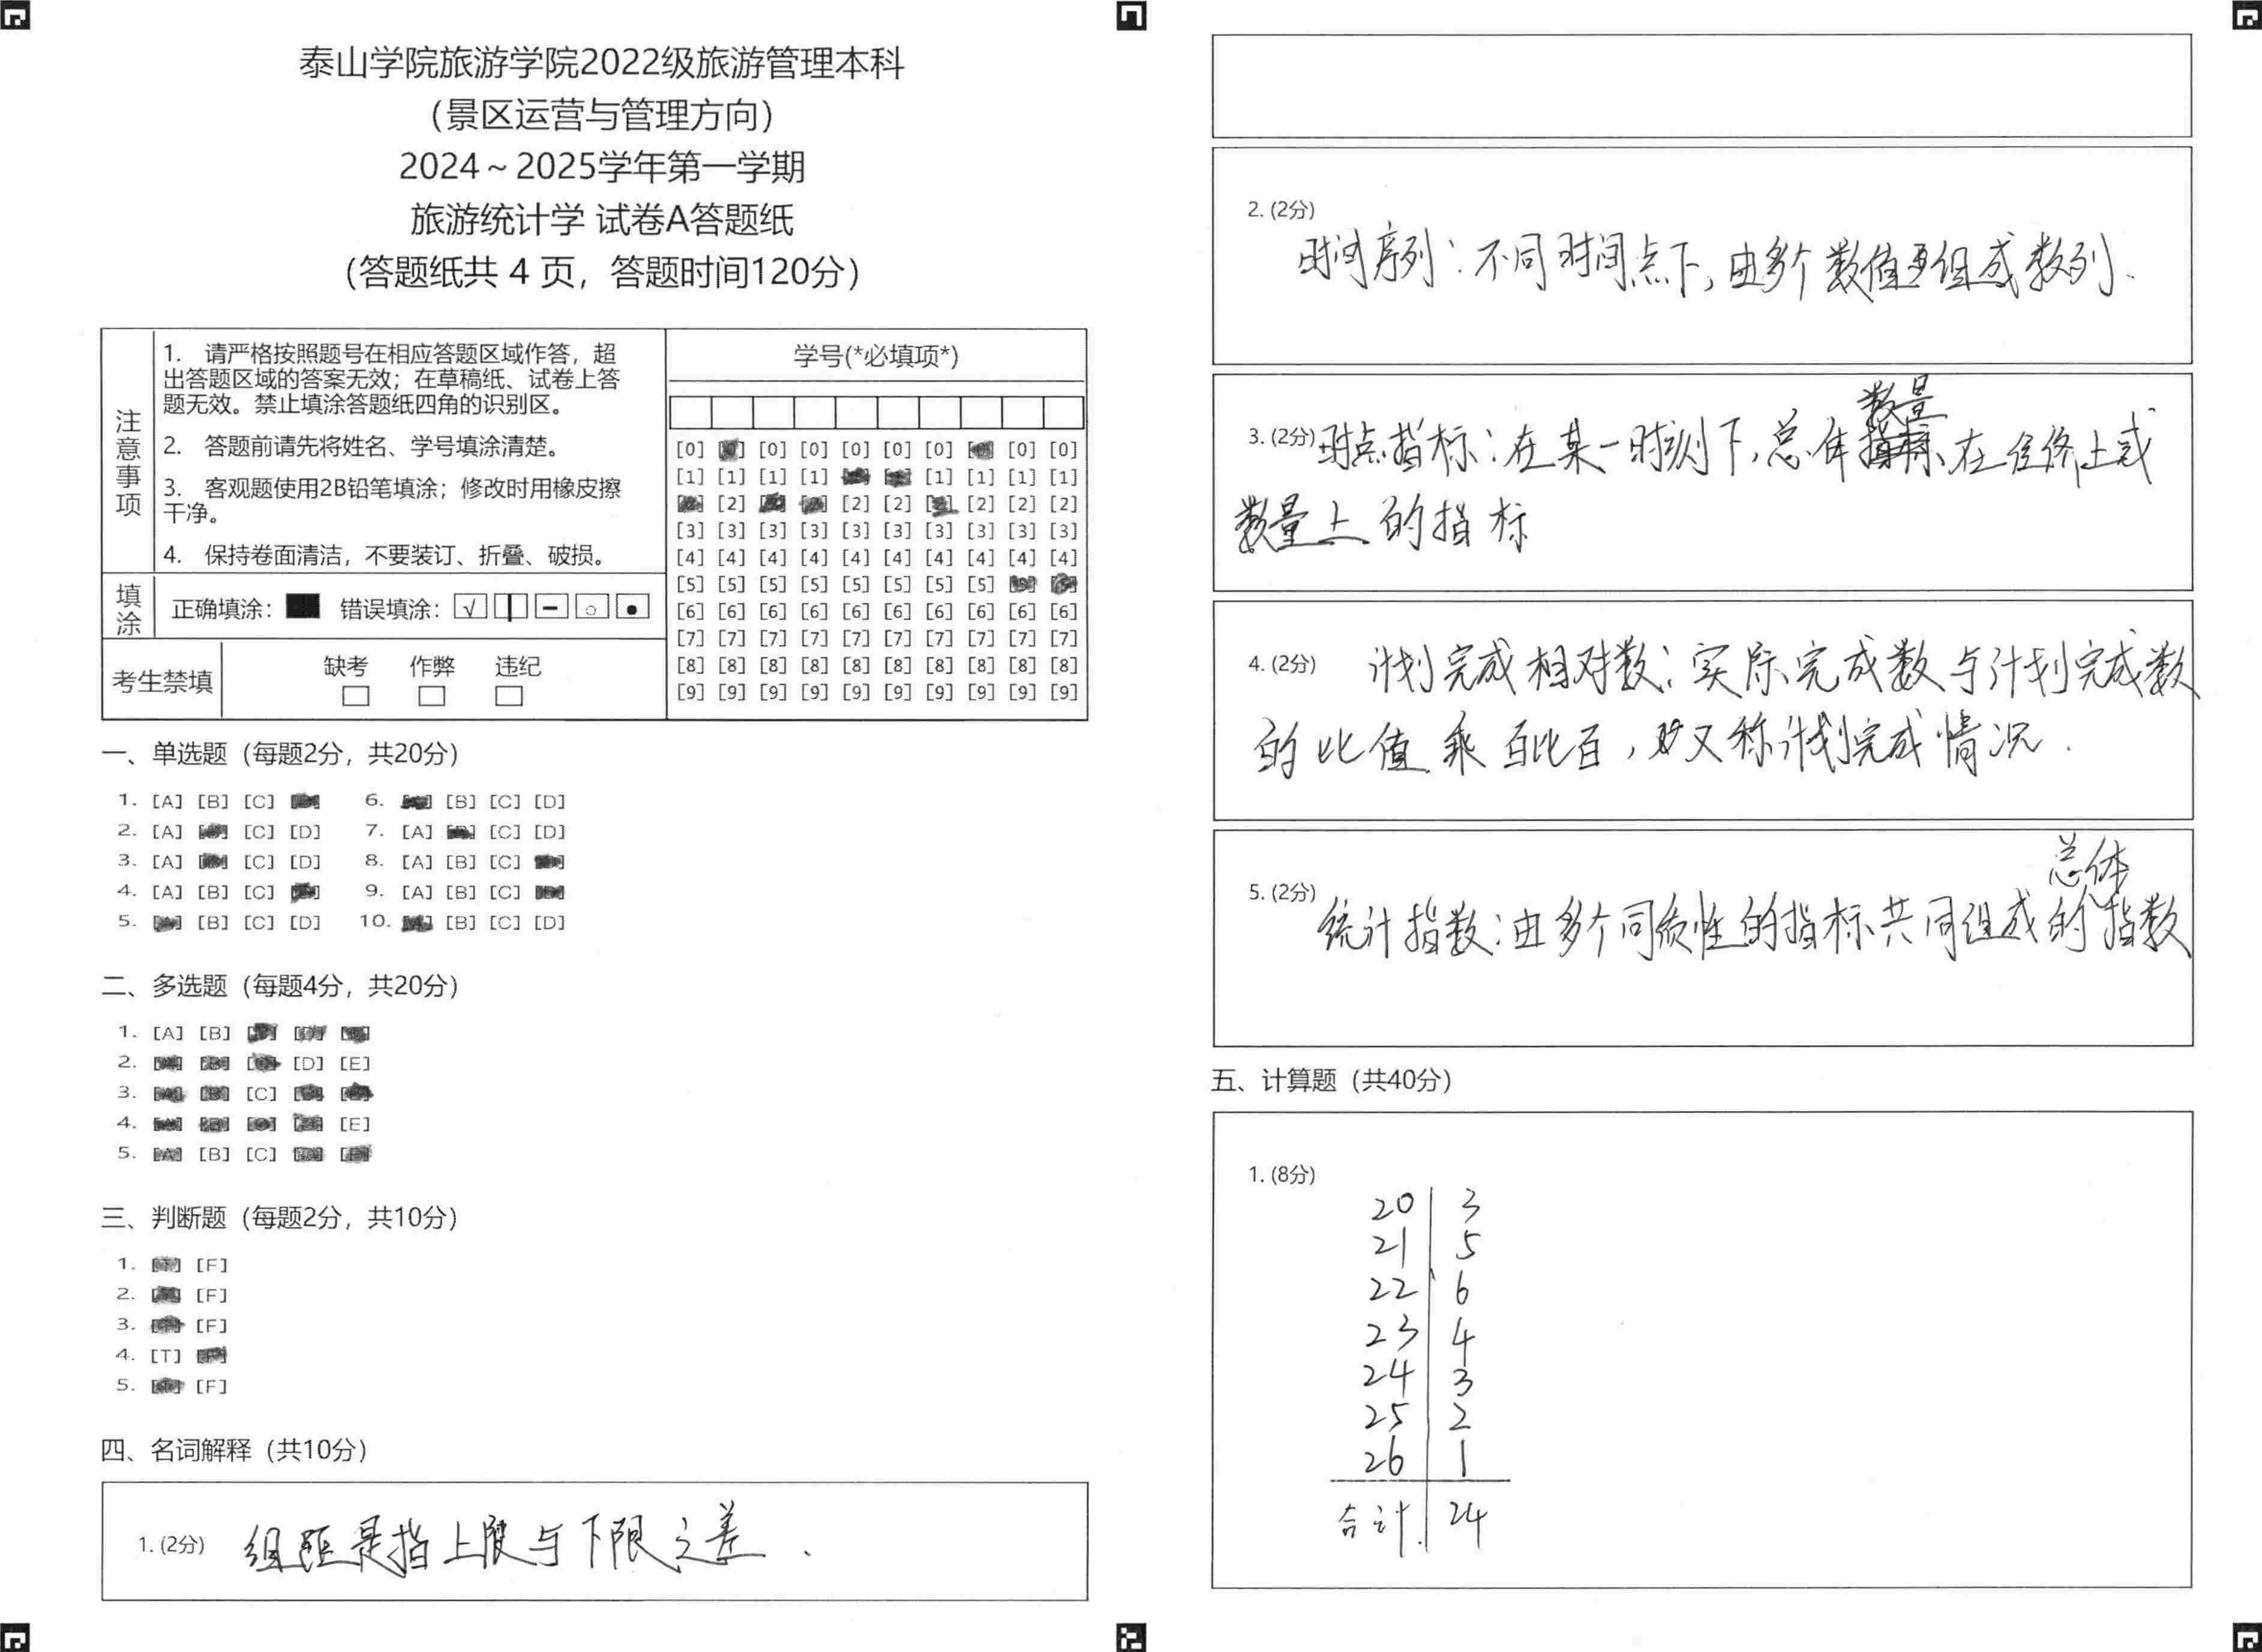 泰山学院旅游学院2022级旅游管理本科
（景区运营与管理方向）
2024～2025学年第一学期
旅游统计学 试卷A答题纸
（答题纸共 4 页，答题时间120分）
注意事项
1. 请严格按照题号在相应答题区域作答，超
出答题区域的答案无效；在草稿纸、试卷上答
题无效。禁止填涂答题纸四角的识别区。
2. 答题前请先将姓名、学号填涂清楚。
3. 客观题使用2B铅笔填涂；修改时用橡皮擦
干净。
4. 保持卷面清洁，不要装订、折叠、破损。
填涂
正确填涂： 错误填涂：
考生禁填
缺考 作弊 违纪
学号(*必填项*)
[0] [0] [0] [0] [0] [0] [0] [0]
[1] [1] [1] [1] [1] [1] [1] [1]
[2] [2] [2] [2] [2] [2]
[3] [3] [3] [3] [3] [3] [3] [3] [3] [3]
[4] [4] [4] [4] [4] [4] [4] [4] [4] [4]
[5] [5] [5] [5] [5] [5] [5] [5]
[6] [6] [6] [6] [6] [6] [6] [6] [6] [6]
[7] [7] [7] [7] [7] [7] [7] [7] [7] [7]
[8] [8] [8] [8] [8] [8] [8] [8] [8] [8]
[9] [9] [9] [9] [9] [9] [9] [9] [9] [9]
一、单选题（每题2分，共20分）
1. [A] [B] [C] 6. [B] [C] [D]
2. [A] [C] [D] 7. [A] [C] [D]
3. [A] [C] [D] 8. [A] [B] [C]
4. [A] [B] [C] 9. [A] [B] [C]
5. [B] [C] [D] 10. [B] [C] [D]
二、多选题（每题4分，共20分）
1. [A] [B]
2. [D] [E]
3. [C]
4. [E]
5. [B] [C]
三、判断题（每题2分，共10分）
1. [F]
2. [F]
3. [F]
4. [T]
5. [F]
四、名词解释（共10分）
1. (2分) 组距是指上限与下限之差．
2. (2分)
时间序列：不同时间点下，由多个数值组成数列．
数量
3. (2分) 时点指标：在某一时刻下，总体在任务上或
数量上的指标
4. (2分) 计划完成相对数：实际完成数与计划完成数
的比值乘百比百，又称计划完成情况．
总体
5. (2分) 统计指数：由多个同质性的指标共同组成的指数
五、计算题（共40分）
1. (8分)
20 3
21 5
22 6
23 4
24 3
25 2
26 1
合计 24